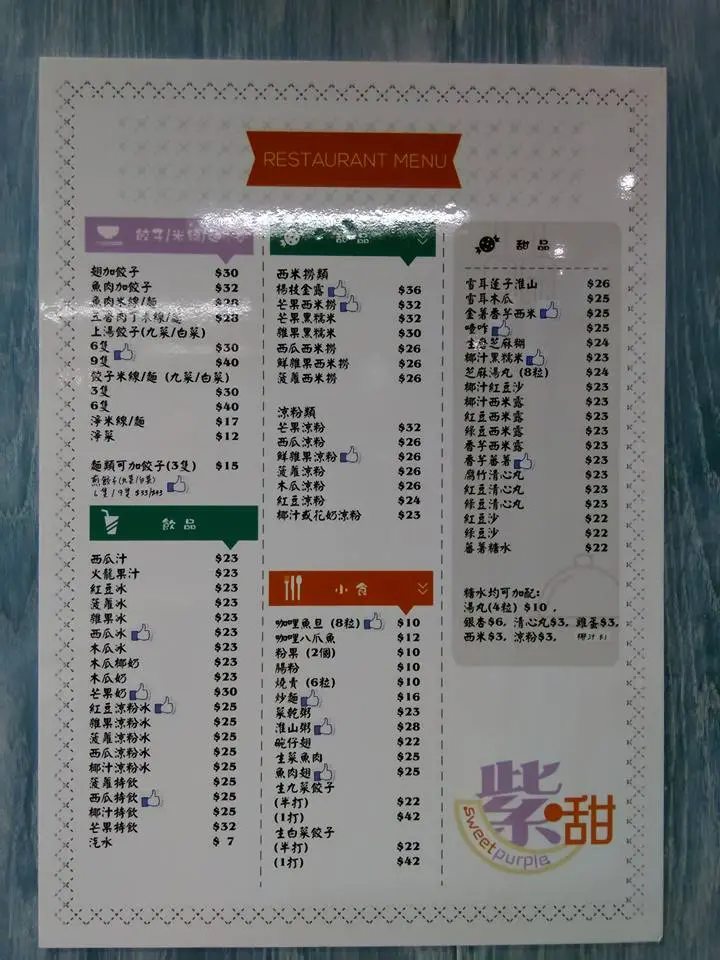 RESTAURANT MENU
餃子/米線/
翅加餃子 $30
魚肉加餃子 $32
魚肉米線/麵 $28
五香肉丁米線/麵 $23
上湯餃子(九菜/白菜)
6隻 $30
9隻 $40
餃子米線/麵 (九菜/白菜)
3隻 $30
6隻 $40
淨米線/麵 $17
淨菜 $12
麵類可加餃子(3隻) $15
煎餃子(九菜/白菜)
6隻/9隻 $33/$43
飲品
西瓜汁 $23
火龍果汁 $23
紅豆冰 $23
菠蘿冰 $23
雜果冰 $23
西瓜冰 $23
木瓜冰 $23
木瓜椰奶 $23
木瓜奶 $23
芒果奶 $30
紅豆涼粉冰 $25
雜果涼粉冰 $25
菠蘿涼粉冰 $25
西瓜涼粉冰 $25
椰汁涼粉冰 $25
菠蘿特飲 $25
西瓜特飲 $25
椰汁特飲 $25
芒果特飲 $32
汽水 $ 7
甜品
西米撈類
楊枝金露 $36
芒果西米撈 $32
芒果黑糯米 $32
雜果黑糯米 $30
西瓜西米撈 $26
鮮雜果西米撈 $26
菠蘿西米撈 $26
涼粉類
芒果涼粉 $32
西瓜涼粉 $26
鮮雜果涼粉 $26
菠蘿涼粉 $26
木瓜涼粉 $26
紅豆涼粉 $24
椰汁或花奶涼粉 $23
小食
咖哩魚旦 (8粒) $10
咖哩八爪魚 $12
粉果 (2個) $10
腸粉 $10
燒賣 (6粒) $10
炒麵 $16
菜乾粥 $23
淮山粥 $28
碗仔翅 $22
生菜魚肉 $25
魚肉翅 $25
生九菜餃子
(半打) $22
(1打) $42
生白菜餃子
(半打) $22
(1打) $42
甜品
雪耳蓮子淮山 $26
雪耳木瓜 $25
金薯香芋西米 $25
喳咋 $25
生磨芝麻糊 $24
椰汁黑糯米 $23
芝麻湯丸 (8粒) $24
椰汁紅豆沙 $23
椰汁西米露 $23
紅豆西米露 $23
綠豆西米露 $23
香芋西米露 $23
香芋蕃薯 $23
腐竹清心丸 $23
紅豆清心丸 $23
綠豆清心丸 $23
紅豆沙 $22
綠豆沙 $22
蕃薯糖水 $22
糖水均可加配:
湯丸(4粒) $10 ,
銀杏$6, 清心丸$3, 雞蛋$3,
西米$3, 涼粉$3, 椰汁 $1
紫甜
sweetpurple